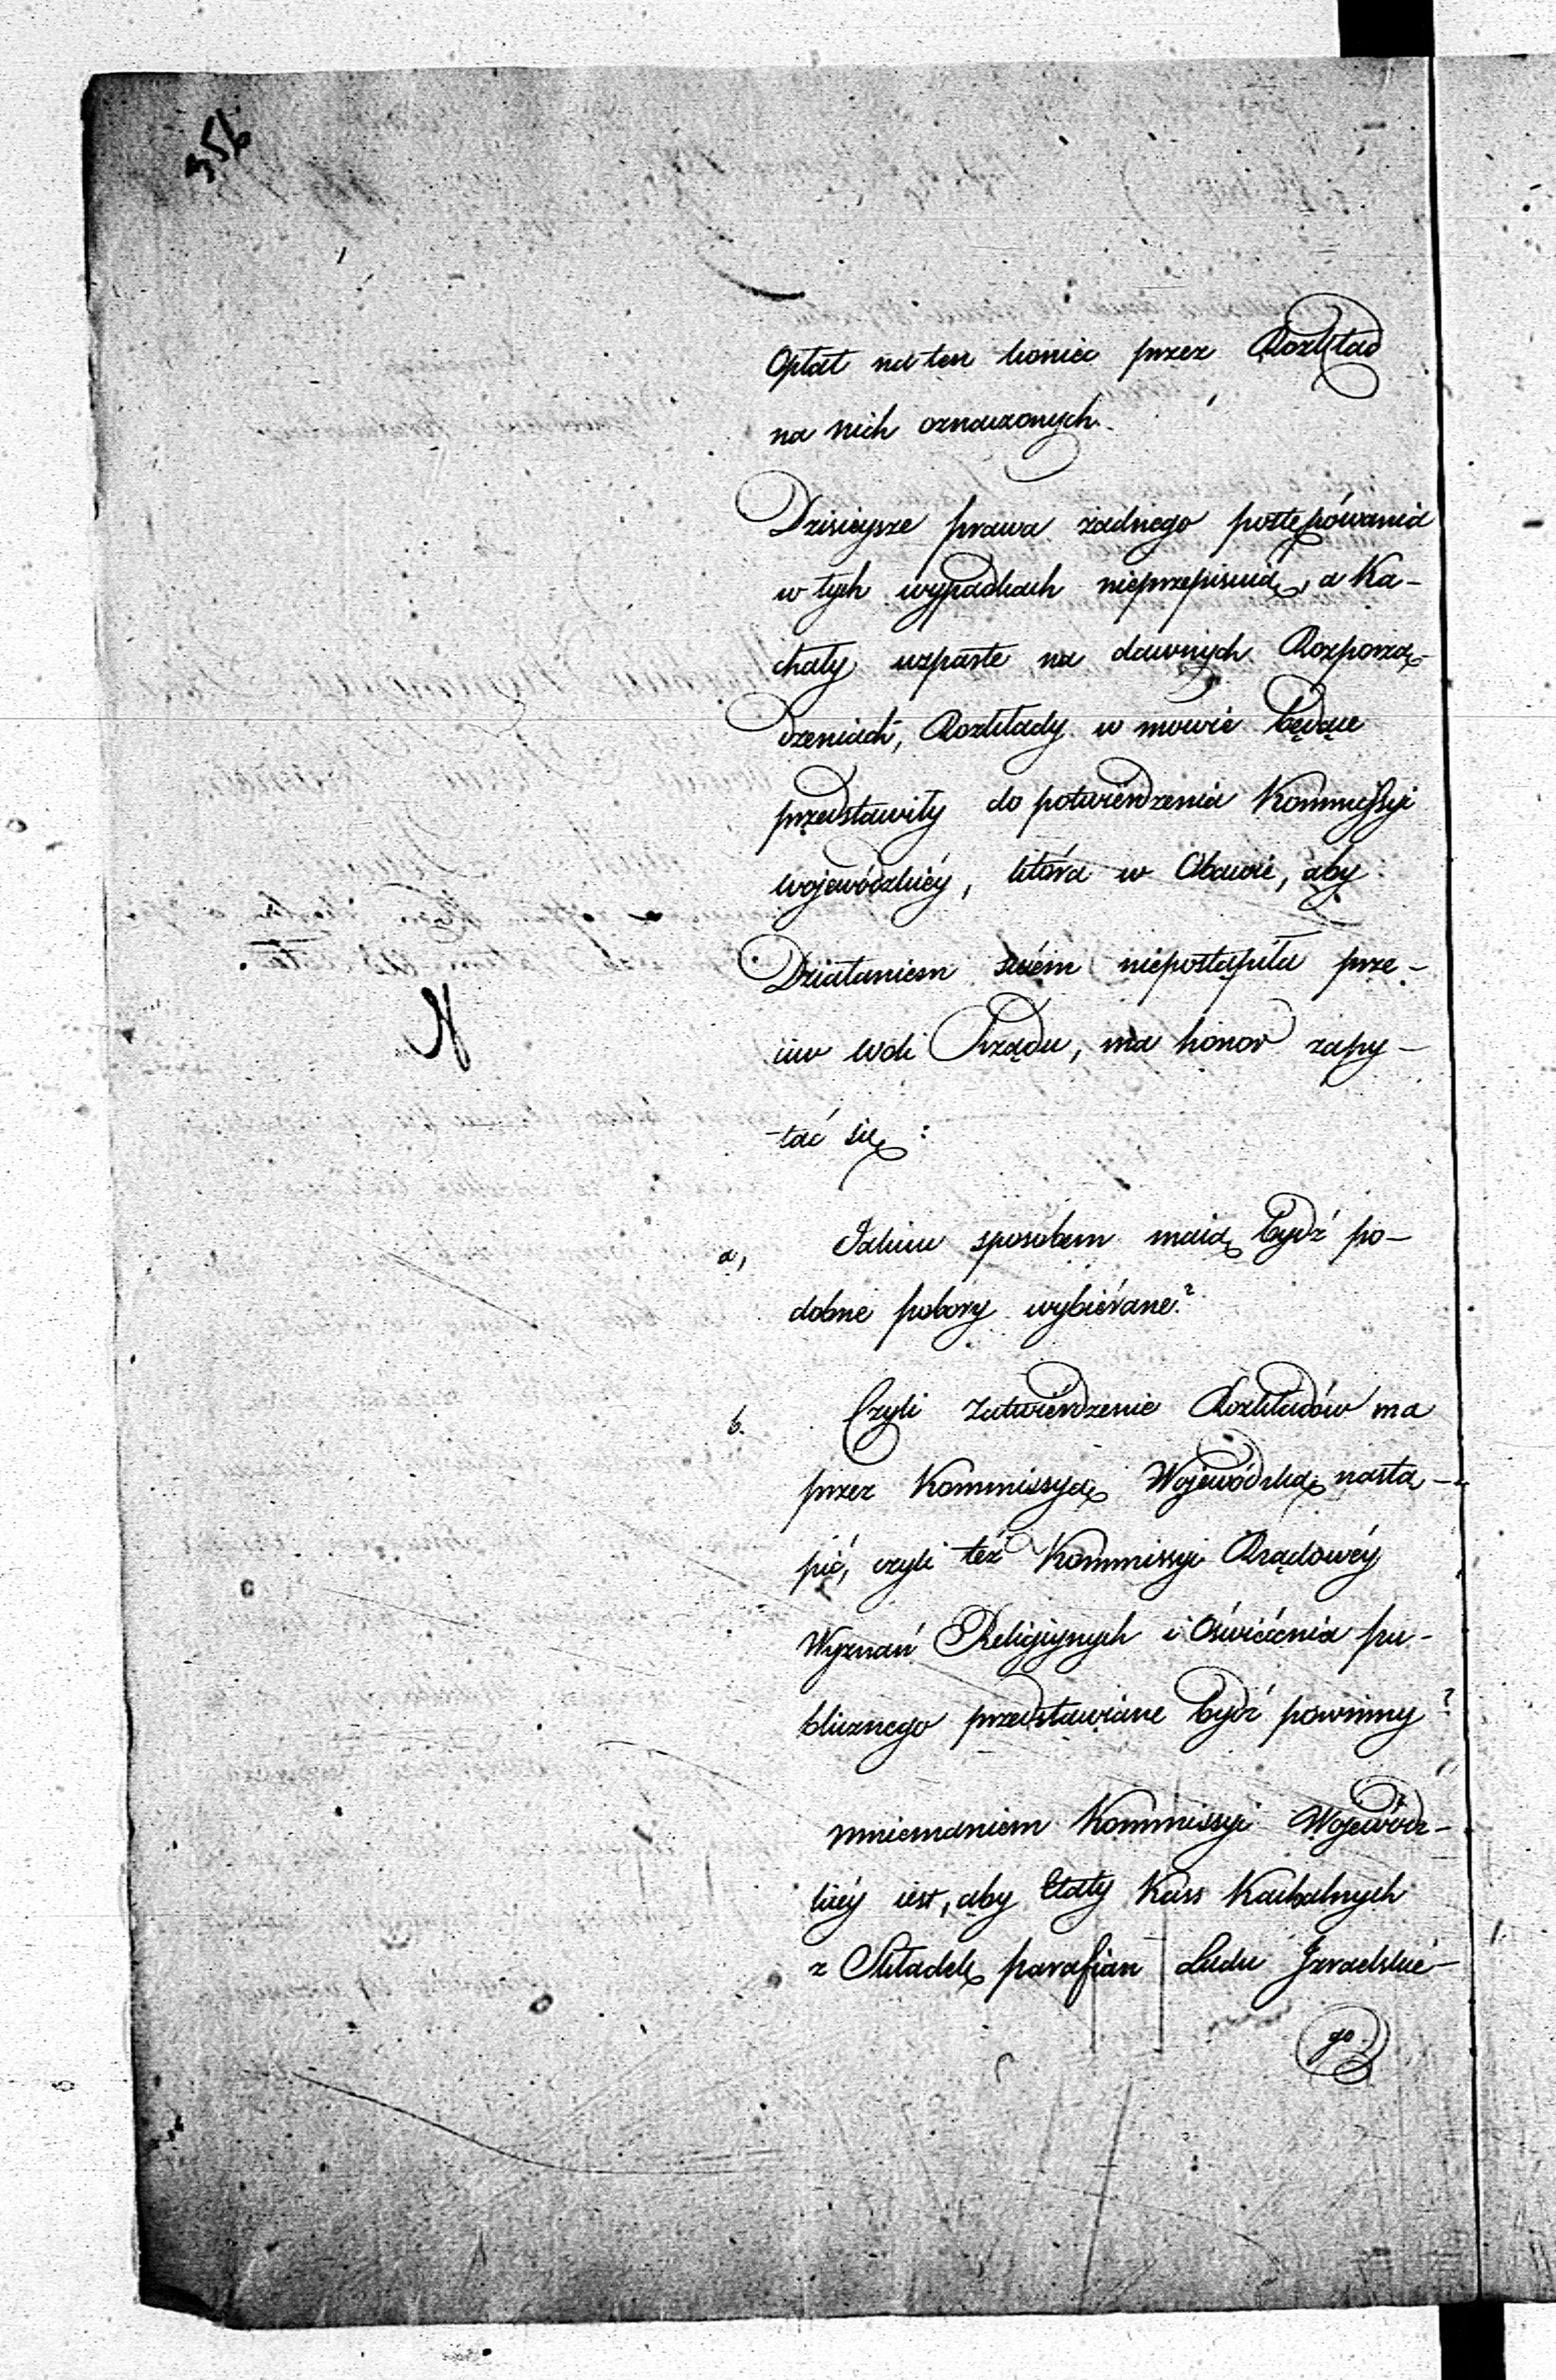 356
Opłat na ten koniec przez Rozkład
na nich oznaczonych.
Dzisieysze prawa żadnego postępówania
w tych wypadkach nieprzepisuią, a Ka-
chały wsparte na dawnych Rozporzą-
dzeniach, Rozkłady w mowie będące
przedstawiły do potwierdzenia Kommissyi
Wojewódzkiéy, która w Obawie, aby
Działaniem swém niepostąpiła prze-
ciw woli Rządu, ma honor zapy-
-tać się:
a, Jakim sposobem maią bydź po-
dobne pobory wybiérane?
b. Czyli zatwiérdzenie Rozkładów ma
przez Kommissyą Wojewódzką nastą-
pić, czyli też Kommissyi Rządowéy
Wyznań Religiynych i Oświécénia pu-
blicznego przedstawiane bydź powinny?
Mniemaniem Kommissyi Wojewódz-
kiéy iest, aby Etaty Kass Kachalnych
z Składek parafian Ludu Izraelskie-
go